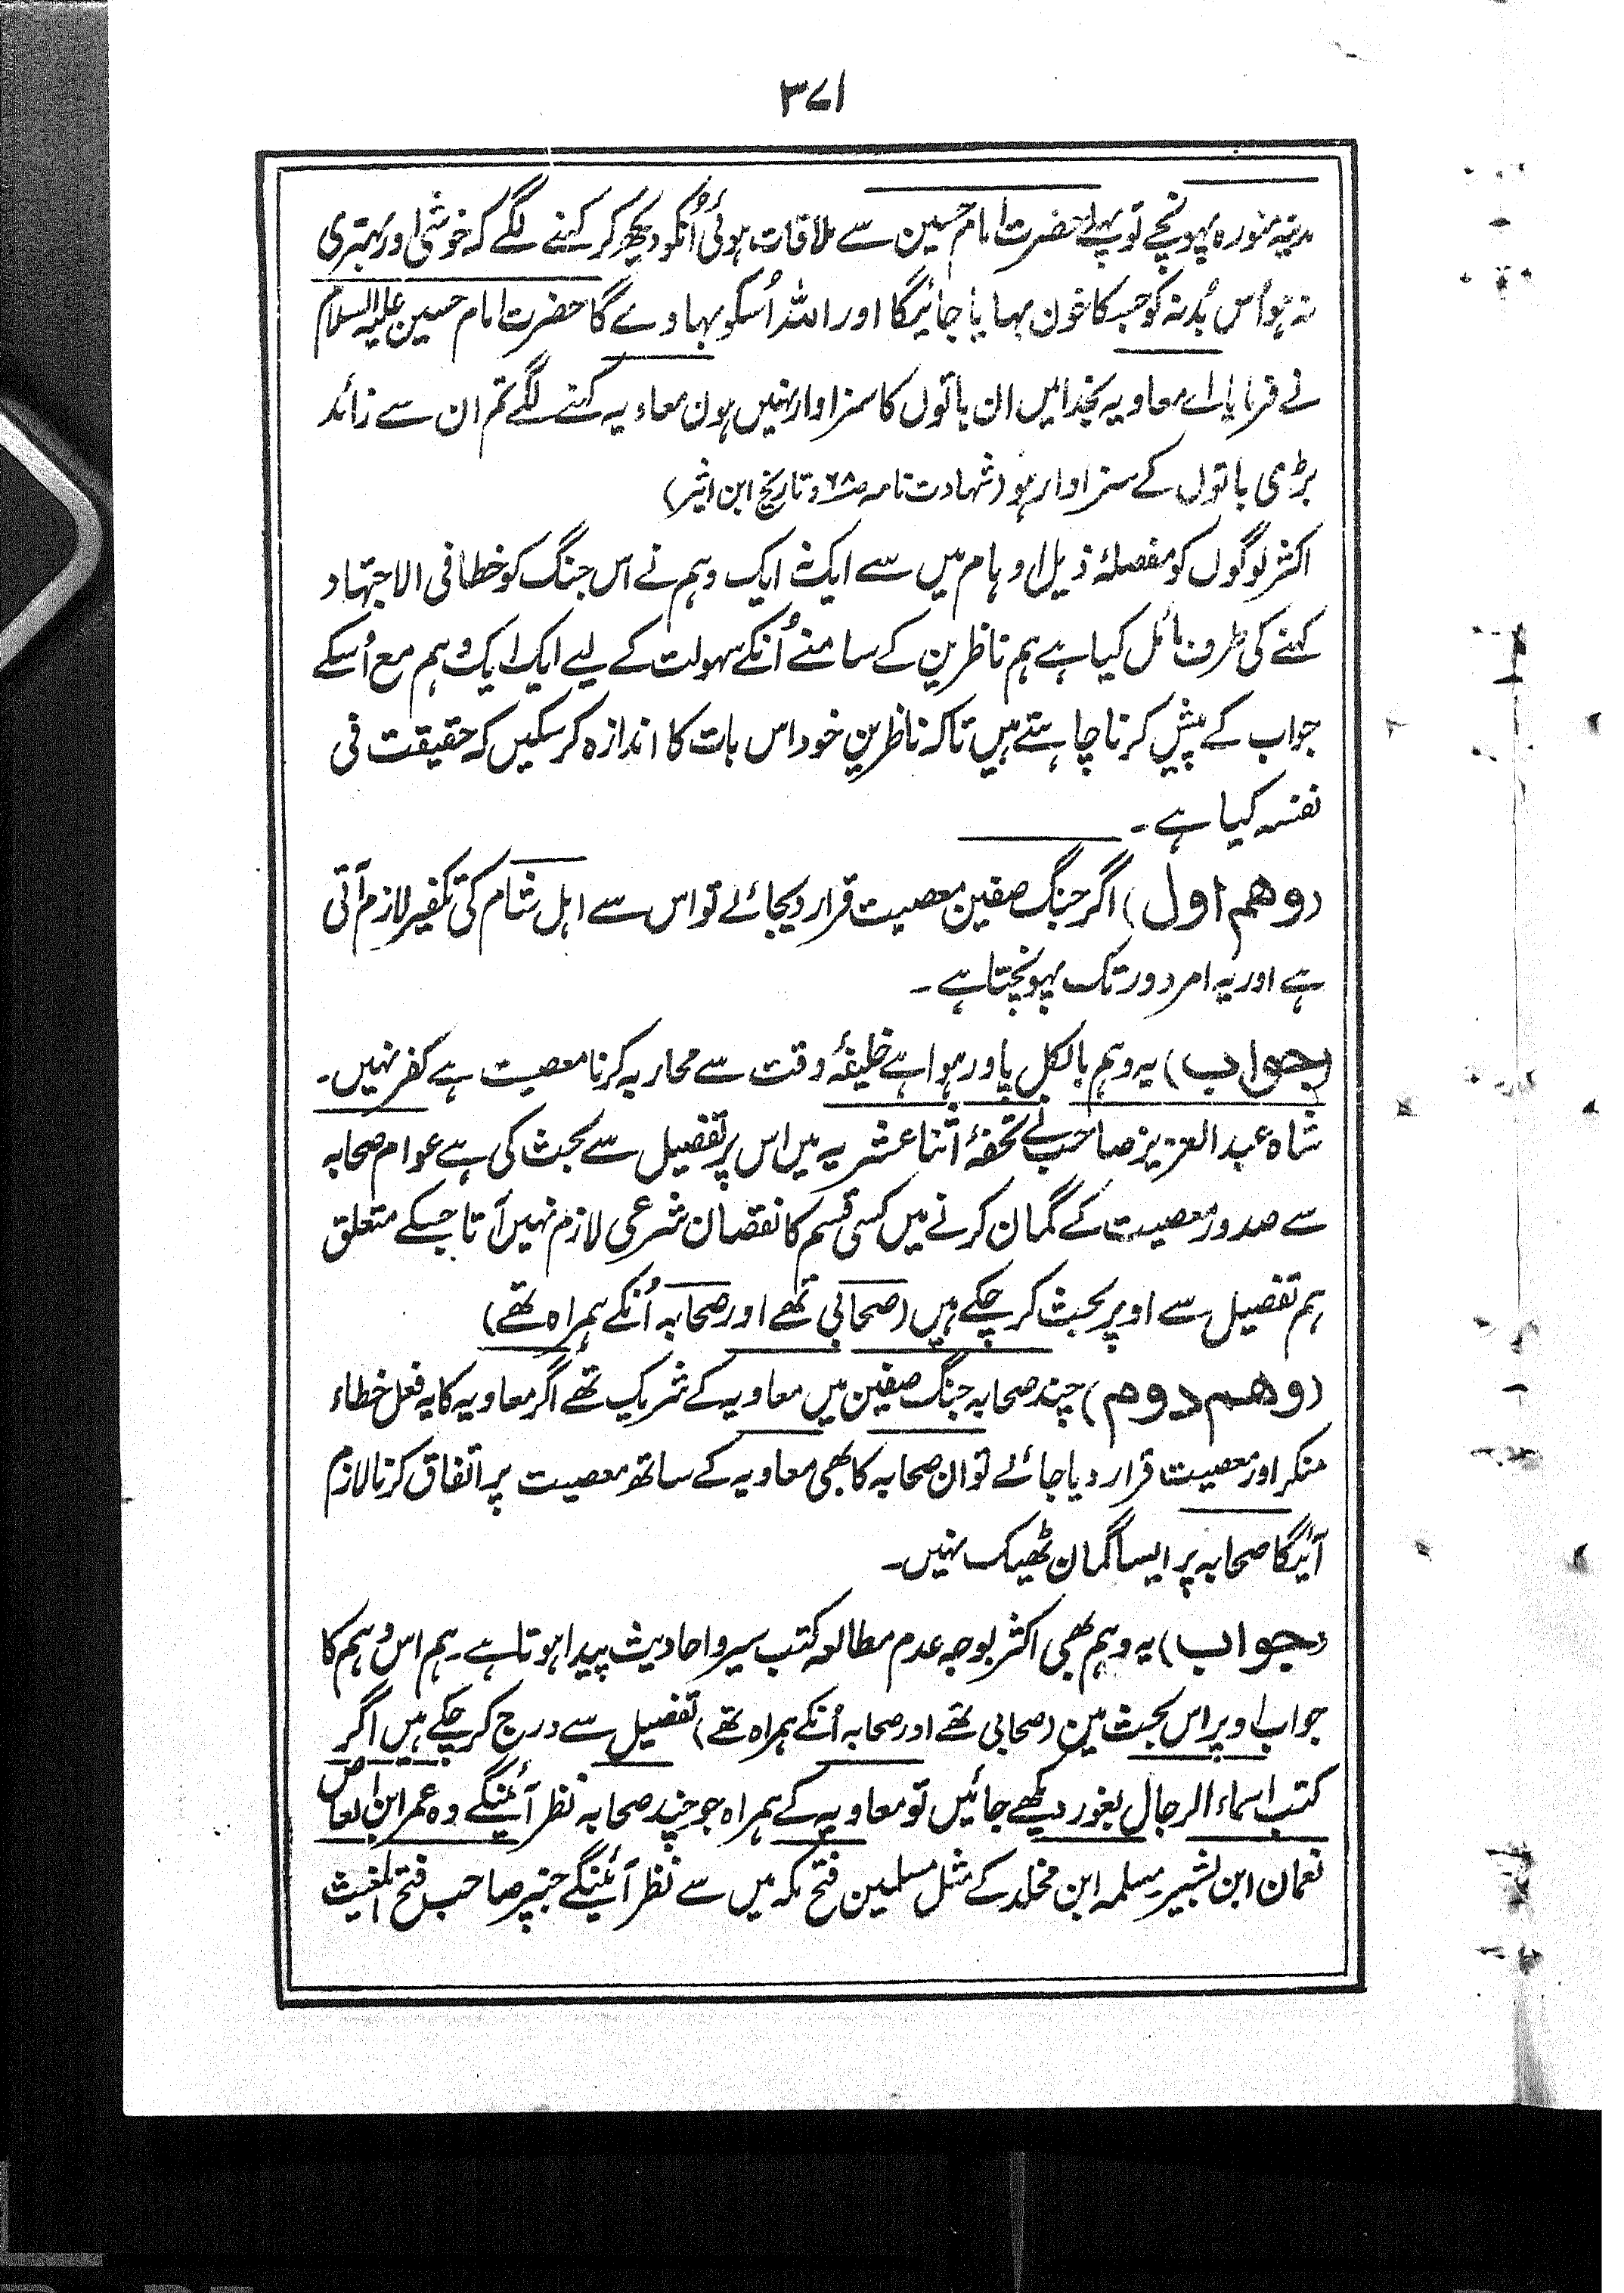 ۳۷۱
مدینہ منورہ پہونچے تو پہلے حضرت امام حسین سے ملاقات ہوئی اُنکو دیکھ کر کہنے لگے کہ خوشی اور بہتری
نہ ہو اُس بُدنہ کو جسکا خون بہایا جائیگا اور اللہ اُسکو بہا دے گا حضرت امام حسین علیہ السلام
نے فرمایا اے معاویہ بخدا میں ان باتوں کا سزاوار نہیں ہون معاویہ کہنے لگے تم ان سے زائد
بڑی باتوں کے سزاوار ہو (شہادت نامہ ص۶۸ و تاریخ ابن اثیر)
اکثر لوگوں کو مفصلۂ ذیل اوہام میں سے ایک نہ ایک وہم نے اس جنگ کو خطا فی الاجتہاد
کہنے کی طرف مائل کیا ہے ہم ناظرین کے سامنے اُنکے سہولت کے لیے ایک ایک وہم مع اُسکے
جواب کے پیش کرنا چاہتے ہیں تاکہ ناظرین خود اس بات کا اندازہ کر سکیں کہ حقیقت فی
نفسہ کیا ہے ۔
(وھم اول) اگر جنگ صفین معصیت قرار دیجائے تو اس سے اہل شام کی تکفیر لازم آتی
ہے اور یہ امر دور تک پہونچتا ہے ۔
(جواب) یہ وہم بالکل پا در ہوا ہے خلیفۂ وقت سے محاربہ کرنا معصیت ہے کفر نہیں ۔
شاہ عبد العزیز صاحب نے تحفۂ اثنا عشریہ میں اس پر تفصیل سے بحث کی ہے عوام صحابہ
سے صدور معصیت کے گمان کرنے میں کسی قسم کا نقصان شرعی لازم نہیں آتا جسکے متعلق
ہم تفصیل سے اوپر بحث کر چکے ہیں (صحابی تھے اور صحابہ اُنکے ہمراہ تھے)
(وھم دوم) چند صحابہ جنگ صفین میں معاویہ کے شریک تھے اگر معاویہ کا یہ فعل خطاء
منکر اور معصیت قرار دیا جائے تو ان صحابہ کا بھی معاویہ کے ساتھ معصیت پر اتفاق کرنا لازم
آئیگا صحابہ پر ایسا گمان ٹھیک نہیں ۔
(جواب) یہ وہم بھی اکثر بوجہ عدم مطالعہ کتب سیر و احادیث پیدا ہوتا ہے ۔ ہم اس وہم کا
جواب اوپر اس بحث مین (صحابی تھے اور صحابہ اُنکے ہمراہ تھے) تفصیل سے درج کر چکے ہیں اگر
کتب اسماء الرجال بغور دیکھے جائیں تو معاویہ کے ہمراہ جو چند صحابہ نظر آئینگے وہ عمر ابن العاص
نعمان ابن بشیر ۔ مسلمہ ابن مخلد کے مثل مسلمین فتح مکہ میں سے نظر آئینگے جنپر صاحب فتح المغیث